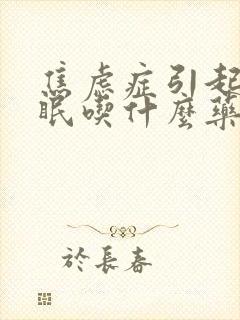 焦虑症引起
眠喫什麼藥
於長春